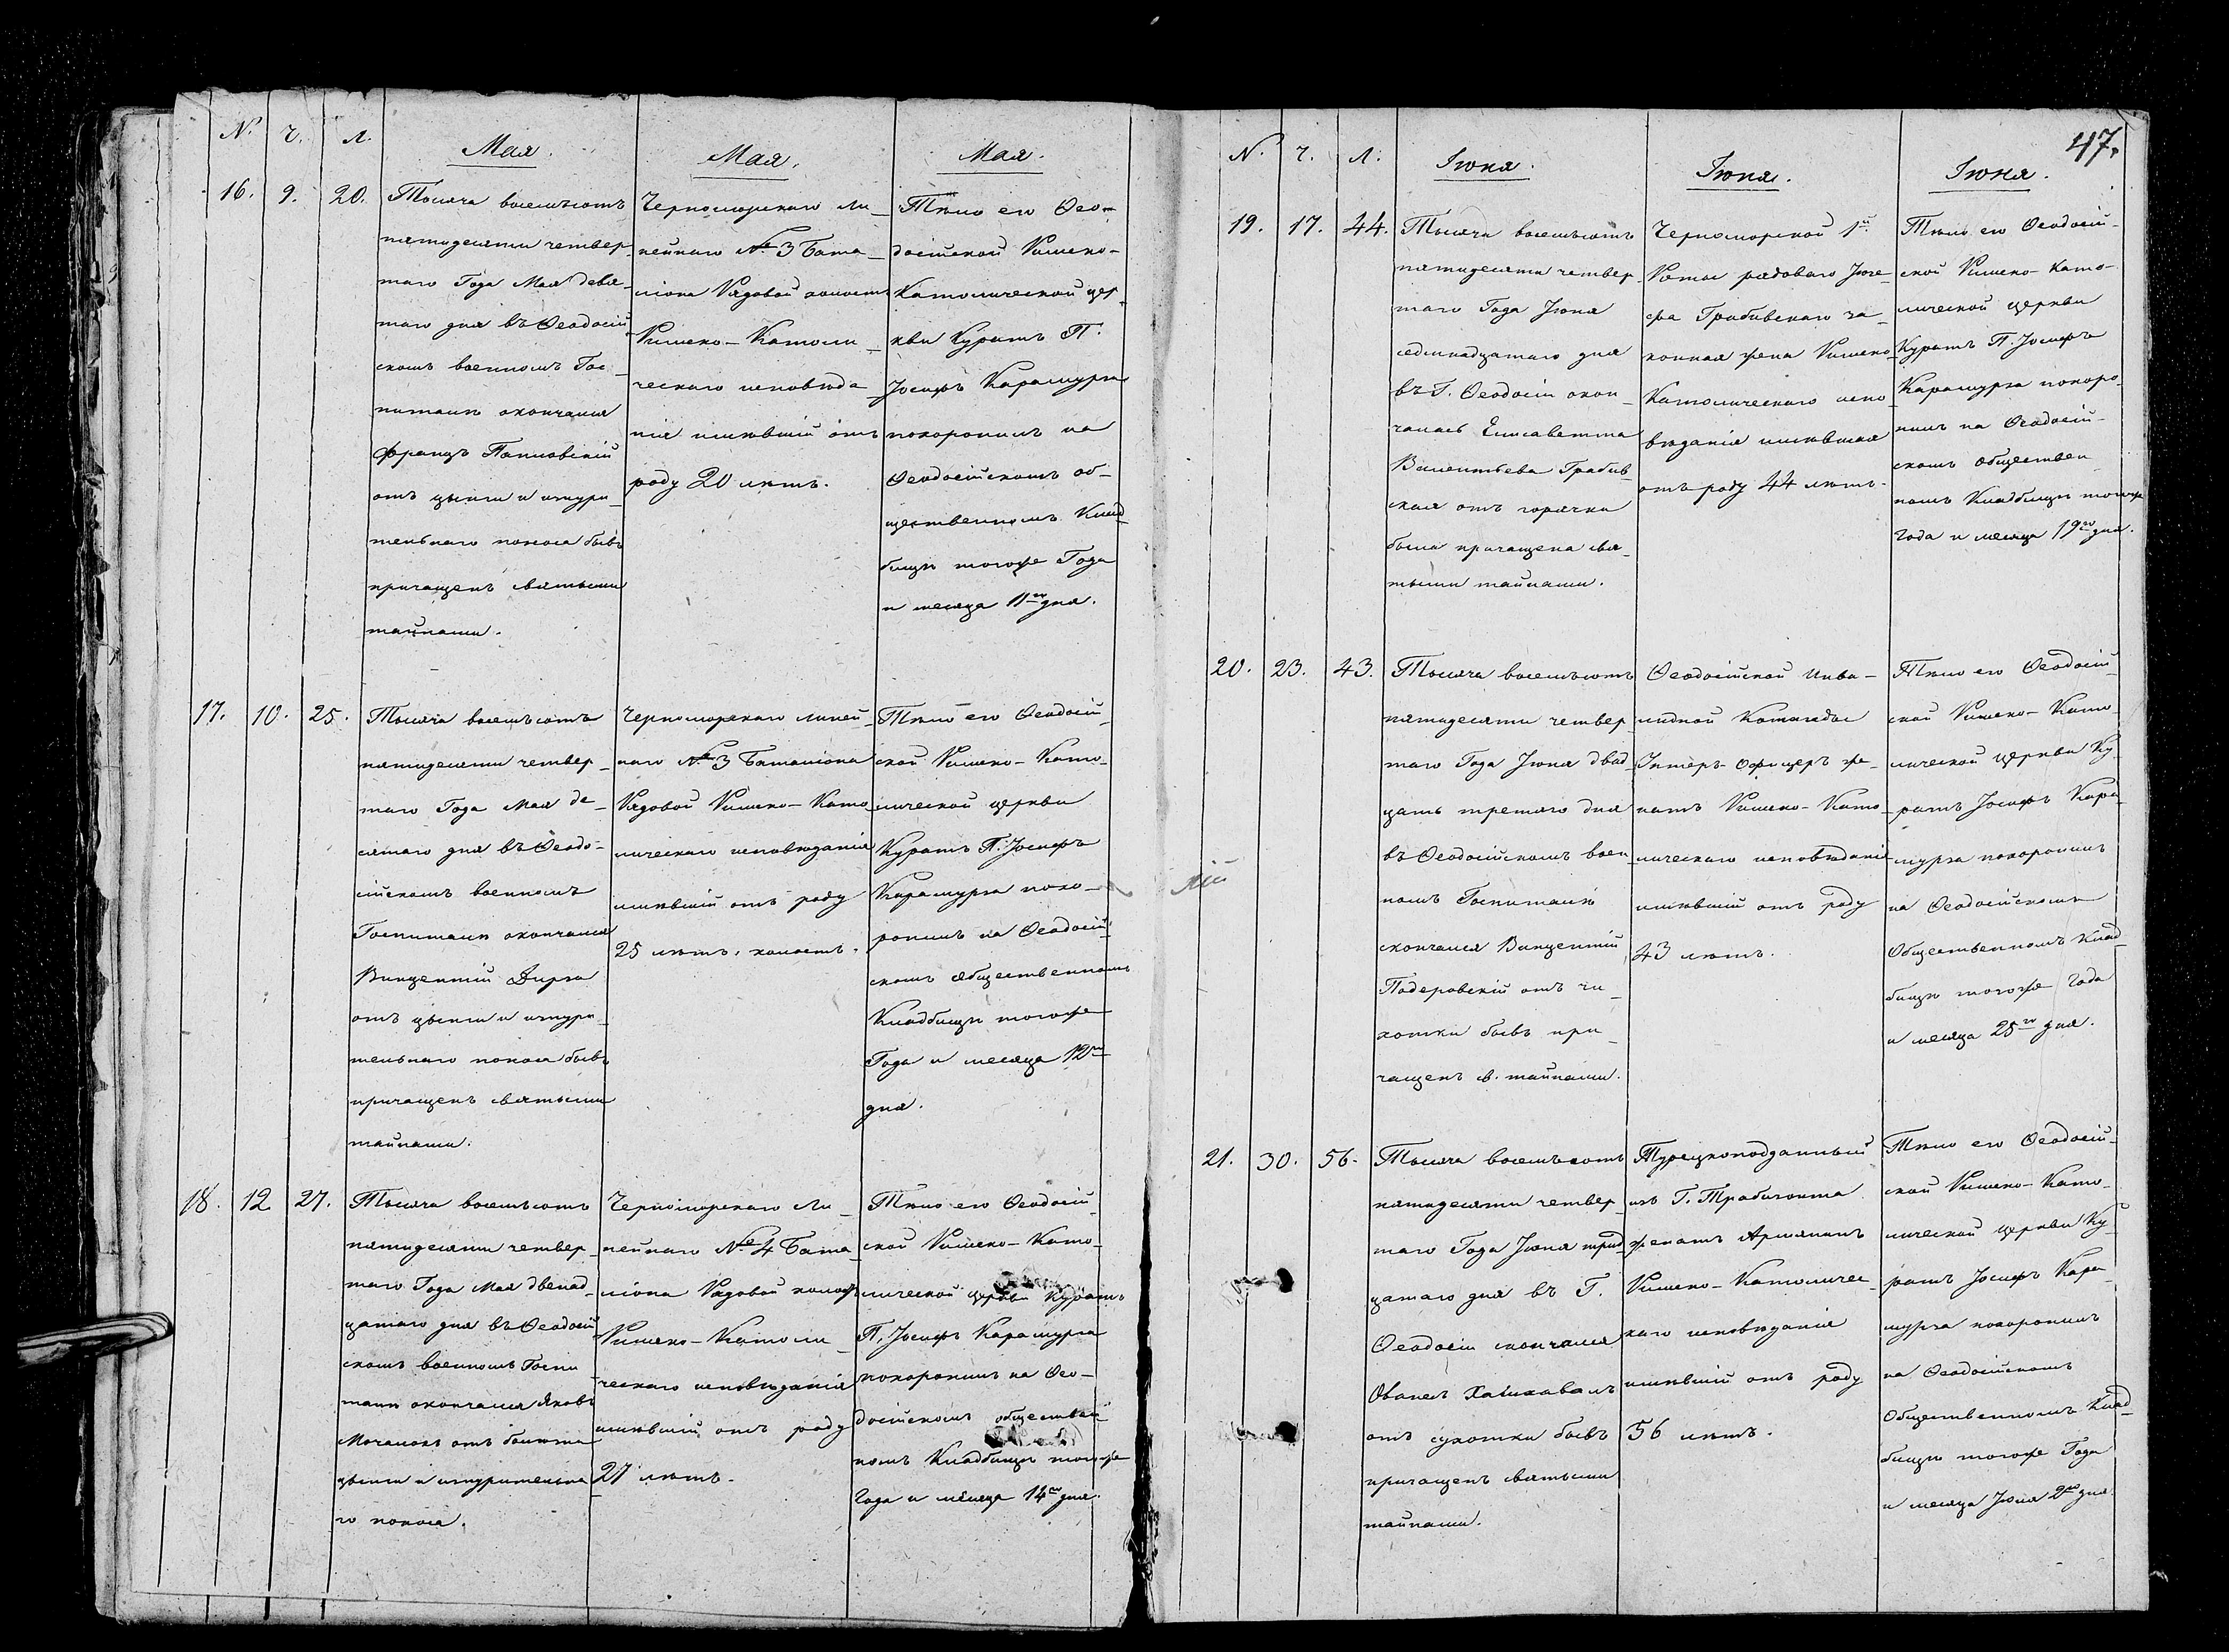 N. Ч. Л. Мая. Мая. Мая.
16. 9. 20.
Тысяча восемьсотъ
пятидесяти четвер_
таго Года Мая девя_
таго дня въ Ѳеодосій_
скомъ военномъ Гос_
питалѣ скончался
Францъ
отъ цынги и изнури_
тельнаго поноса бывъ
причащенъ святыми
тайнами.
Черноморскаго Ли_
нейнаго № 3 Бата_
ліона Рядовой холостъ
Римско-Католи_
ческаго исповѣда_
нія имѣвшій отъ
роду 20 лѣтъ.
Тѣло его Ѳео-
досійской Римско-
Католической цер_
кви Куратъ П.
Іосифъ Карамурза
похоронилъ на
Ѳеодосійскомъ об-
щественномъ Клад_
бищѣ тогоже Года
и месяца 11го дня.
17. 10. 25.
Тысяча восемьсотъ
пятидесяти четвер_
таго Года Мая де_
сятаго дня въ Ѳеодо-
сійскомъ военномъ
Госпиталѣ скончался
Винцентій Дирза
отъ цынги и изнури_
тельнаго поноса бывъ
причащенъ святыми
тайнами.
Черноморскаго Линей_
наго № 3 Баталіона
Рядовой Римско-Като_
лическаго исповѣданія
имѣвшій отъ роду
25 лѣтъ, холостъ.
Тѣло его Ѳеодосій_
ской Римско-Като_
лической церкви
Куратъ П. Іосифъ
Карамурза похо_
ронилъ на Ѳеодосій_
скомъ общественномъ
Кладбищѣ тогоже
Года и месяца 12го
дня.
18. 12. 27.
Тысяча восемьсотъ
пятидесяти четвер_
таго Года Мая двенад_
цатаго дня въ Ѳеодосій_
скомъ военномъ Госпи_
талѣ скончался Яковъ
отъ
цынги и изнурительна_
го поноса.
Черноморскаго Ли_
нейнаго № 4 Бата_
ліона Рядовой холостъ
Римско-Католи_
ческаго исповѣданія
имѣвшій отъ роду
27 лѣтъ.
Тѣло его Ѳеодосій_
ской Римско-Като_
лической церкви Куратъ
П. Іосифъ Карамурза
похоронилъ на Ѳео-
досійскомъ обществен_
номъ Кладбищѣ тогоже
Года и месяца 14го дня.
47.
N. Ч. Л. Іюня. Іюня. Іюня.
19. 17. 44.
Тысяча восемьсотъ
пятидесяти четвер_
таго Года Іюня
седмнадцатаго дня
въ Г. Ѳеодосіи скон_
чалась Елисавета
Валентьева Грабив_
ская отъ горячки
была причащена свя_
тыми тайнами.
Черноморской 1й
Роты рядоваго Іозе_
фа Грабивскаго за_
конная жена Римско_
Католическаго испо_
вѣданія имѣвшая
отъ роду 44 лѣтъ.
Тѣло его Ѳеодосій_
ской Римско-Като-
лической церкви
Куратъ П. Іосифъ
Карамурза похоро_
нилъ на Ѳеодосій_
скомъ обществен_
номъ Кладбищѣ тогоже
Года и месяца 19го дня.
20. 23. 43.
Тысяча восемьсотъ
пятидесяти четвер_
таго Года Іюня двад_
цать третяго дня
въ Ѳеодосійскомъ воен_
номъ Госпиталѣ
скончался Винцентій
Подеровскій отъ ча_
хотки бывъ при_
чащенъ св. тайнами.
Ѳеодосійской Инва-
лидной Команды
Унтеръ-Офицеръ же_
натъ Римско-Като_
лическаго исповѣданія
имѣвшій отъ роду
43 лѣтъ.
Тѣло его Ѳеодосій_
ской Римско-Като_
лической церкви Ку_
ратъ Іосифъ Кара_
мурза похоронилъ
на Ѳеодосійскомъ
Общественномъ Клад_
бищѣ тогоже Года
и месяца 25го дня.
21. 30. 56.
Тысяча восемьсотъ
пятидесяти четвер_
таго Года Іюня трид_
цатаго дня въ Г.
Ѳеодосіи скончался
Ованесъ
отъ сухотки бывъ
причащенъ святыми
тайнами.
Турецкоподданный
изъ Г. Трабизонта
женатъ Армянинъ
Римско-Католичес_
каго исповѣданія
имѣвшій отъ роду
56 лѣтъ.
Тѣло его Ѳеодосій_
ской Римско-Като_
лической церкви Ку_
ратъ Іосифъ Кара_
мурза похоронилъ
на Ѳеодосійскомъ
Общественномъ Клад_
бищѣ тогоже Года
и месяца Іюля 2го дня.